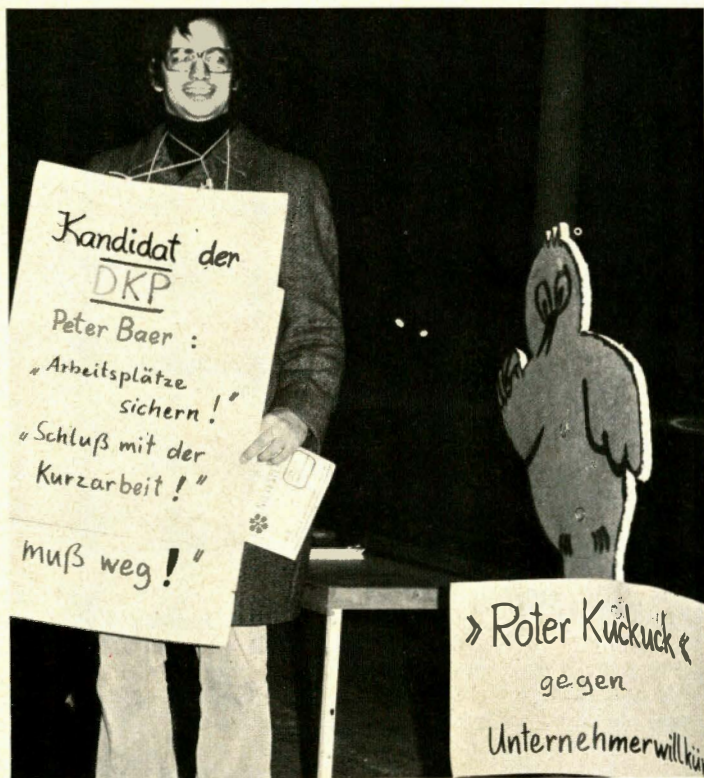 Kandidat der
DKP
Peter Baer :
„Arbeitsplätze
sichern !"
„Schluß mit der
Kurzarbeit !"
muß weg !"
» Roter Kuckuck «
gegen
Unternehmerwillkür